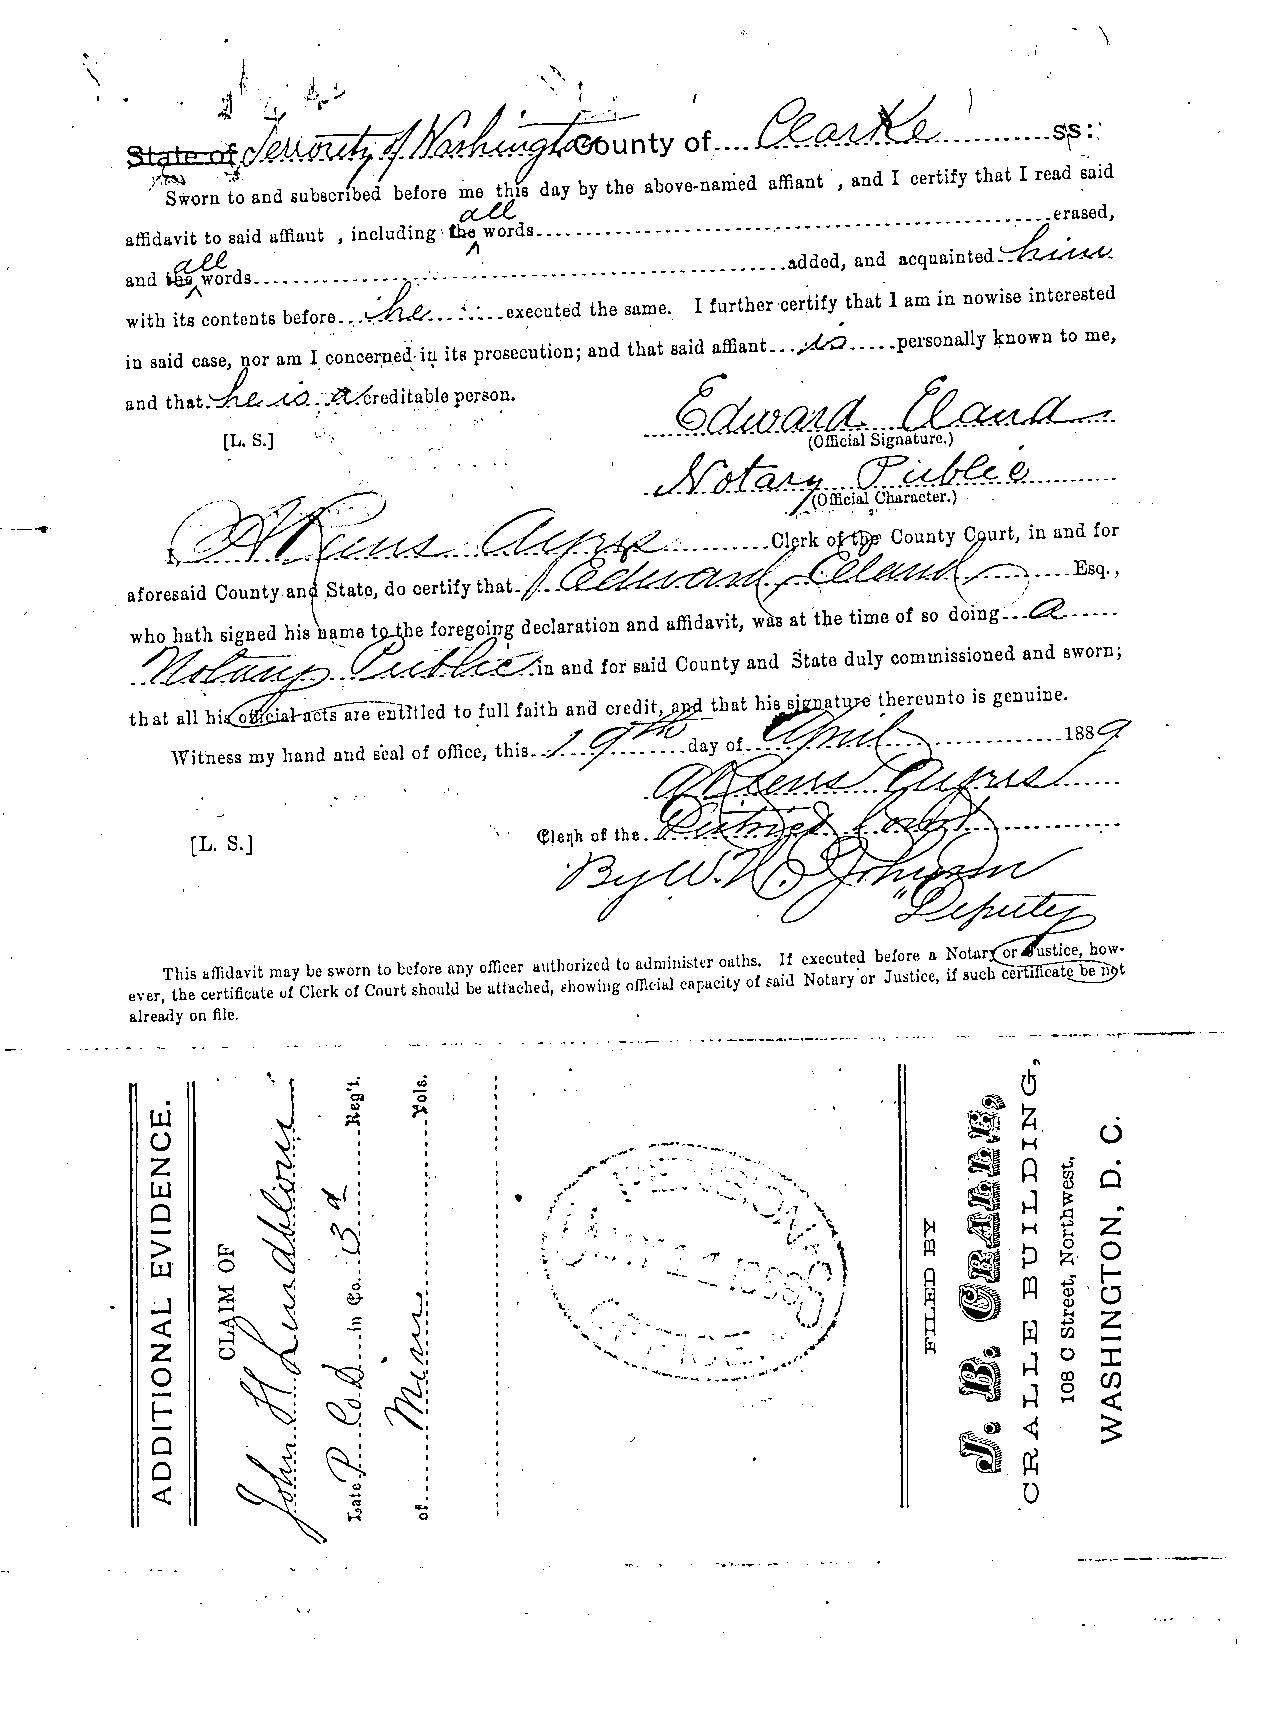 State of Terrority of Washington County of Clarke ss:
Sworn to and subscribed before me this day by the above-named affiant , and I certify that I read said
all
affidavit to said affiant , including the words erased,
all
and the words added, and acquainted him
with its contents before he executed the same. I further certify that I am in nowise interested
in said case, nor am I concerned in its prosecution; and that said affiant is personally known to me,
and that he is a creditable person.
Edward Eland
[L. S.] (Official Signature.)
Notary Public
(Official Character.)
I, Ayres Clerk of the County Court, in and for
aforesaid County and State, do certify that Edward Eland Esq.,
who hath signed his name to the foregoing declaration and affidavit, was at the time of so doing a
Notary Public in and for said County and State duly commissioned and sworn;
that all his official acts are entitled to full faith and credit, and that his signature thereunto is genuine.
Witness my hand and seal of office, this 19th day of April 1889
Ayres
[L. S.] Clerk of the District Court
By W. H. Johnson
Deputy
This affidavit may be sworn to before any officer authorized to administer oaths. If executed before a Notary or Justice, how-
ever, the certificate of Clerk of Court should be attached, showing official capacity of said Notary or Justice, if such certificate be not
already on file.
ADDITIONAL EVIDENCE.
CLAIM OF
John H Lundblom
Late P Co D in Co. 3d Reg't.
of Minn Vols.
PENSION
OFFICE
FILED BY
J. B. CRALLE,
CRALLE BUILDING,
108 C Street, Northwest,
WASHINGTON, D. C.